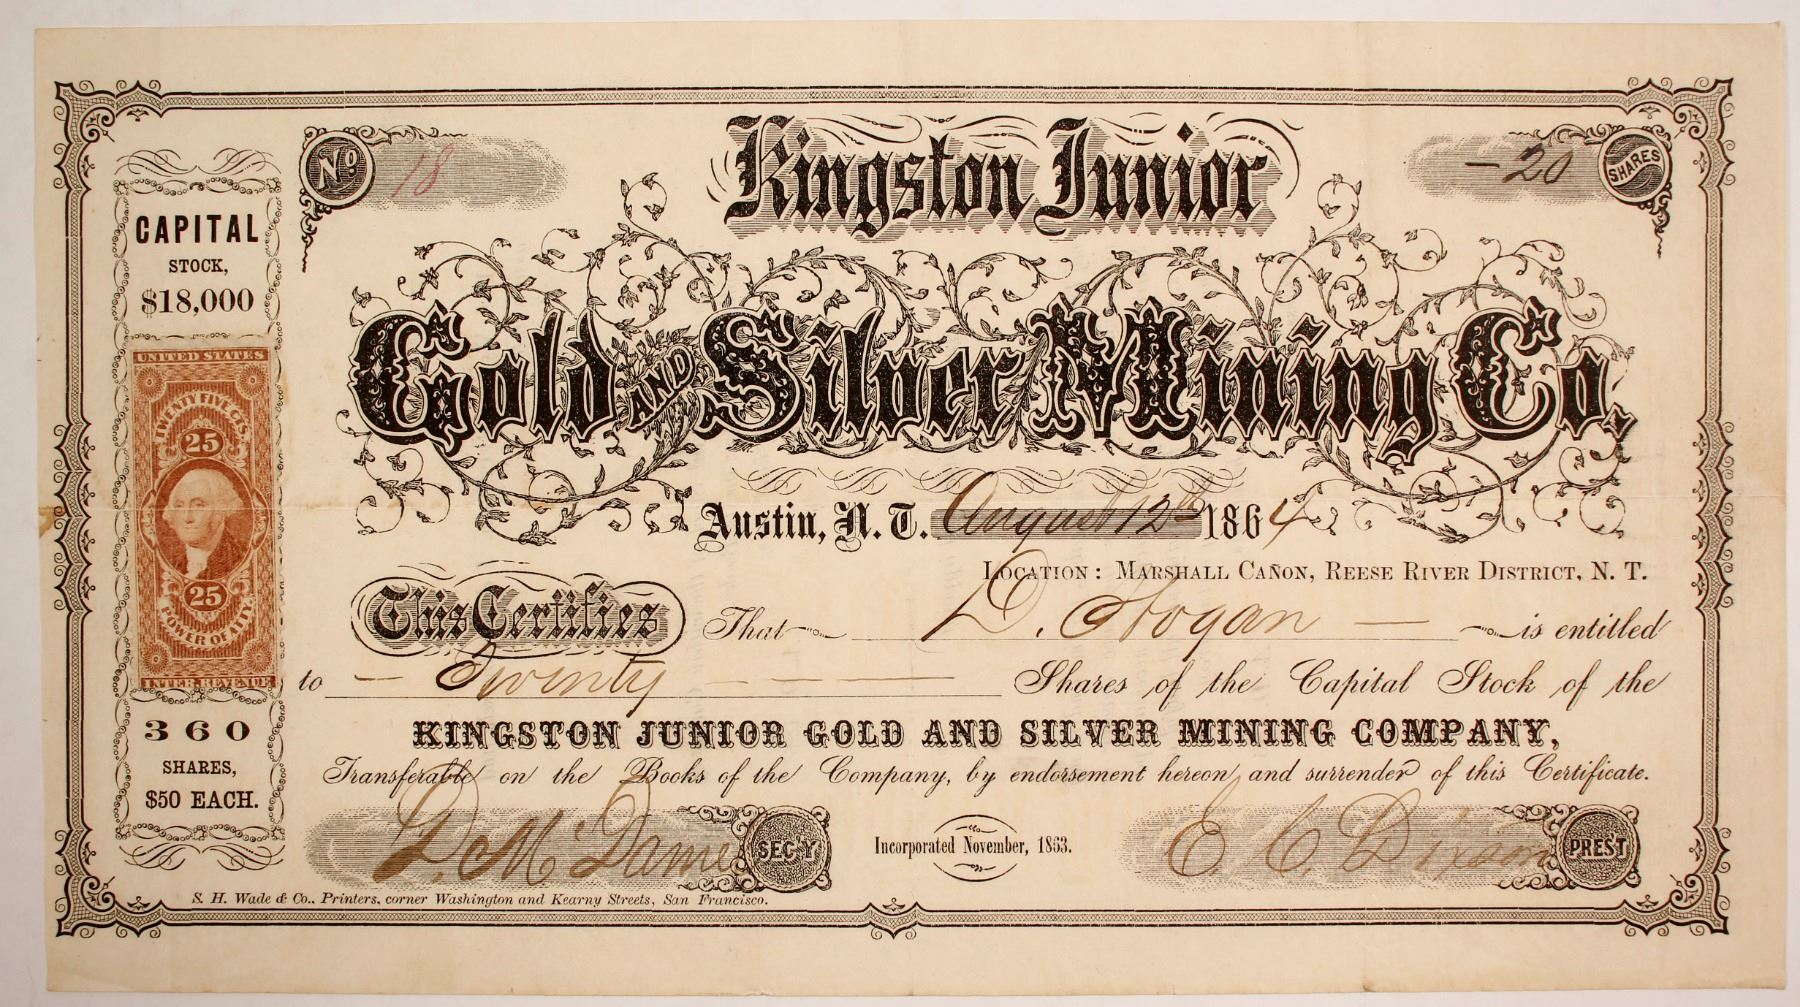 No 18
Kingston Junior
- 20 SHARES
CAPITAL
STOCK,
$18,000
Gold AND Silver Mining Co.
UNITED STATES
TWENTY FIVE CTS.
25
25
POWER OF ATTY.
INTER. REVENUE
360
SHARES,
$50 EACH.
Austin, N. T. August 12th 1864
LOCATION: MARSHALL CAÑON, REESE RIVER DISTRICT, N. T.
This Certifies That D. Hogan — is entitled
to — Twenty — — — Shares of the Capital Stock of the
KINGSTON JUNIOR GOLD AND SILVER MINING COMPANY,
Transferable on the Books of the Company, by endorsement hereon and surrender of this Certificate.
SEC'Y
Incorporated November, 1863.
E. C. Dixon PREST
S. H. Wade & Co., Printers, corner Washington and Kearny Streets, San Francisco.